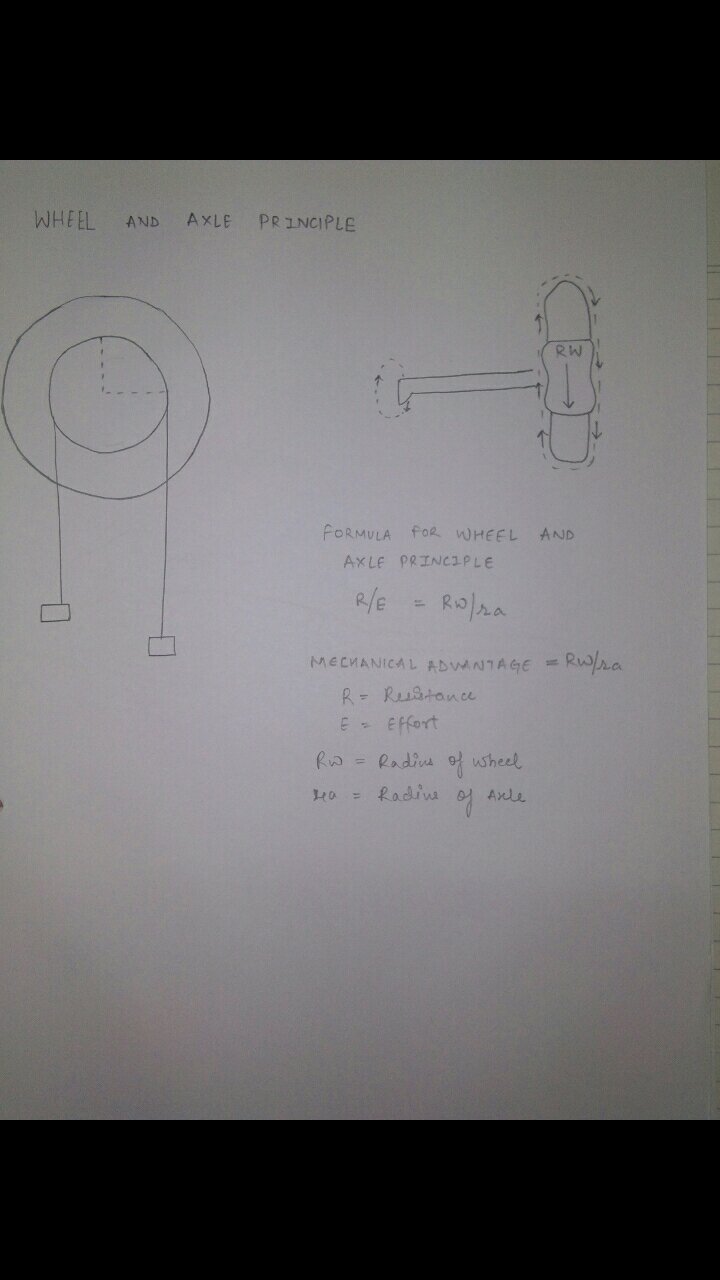 WHEEL AND AXLE PRINCIPLE
RW
FORMULA FOR WHEEL AND
AXLE PRINCIPLE
R/E = Rw/ra
MECHANICAL ADVANTAGE = Rw/ra
R = Resistance
E = Effort
Rw = Radius of wheel
ra = Radius of Axle